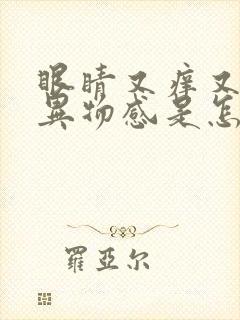 眼睛又痒又
異物感是怎
羅亞尔